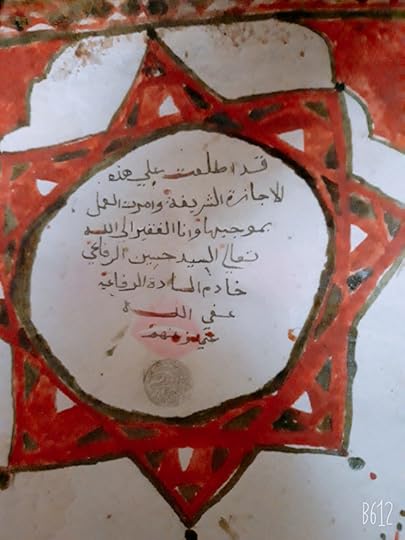 قد اطلعت على هذه
الاجازة الشريفة وامرت العمل
بموجبها وانا الفقير الى الله
تعالى السيد حسين الرفاعي
خادم السادة الرفاعية
عفى الله
عنهم
B612